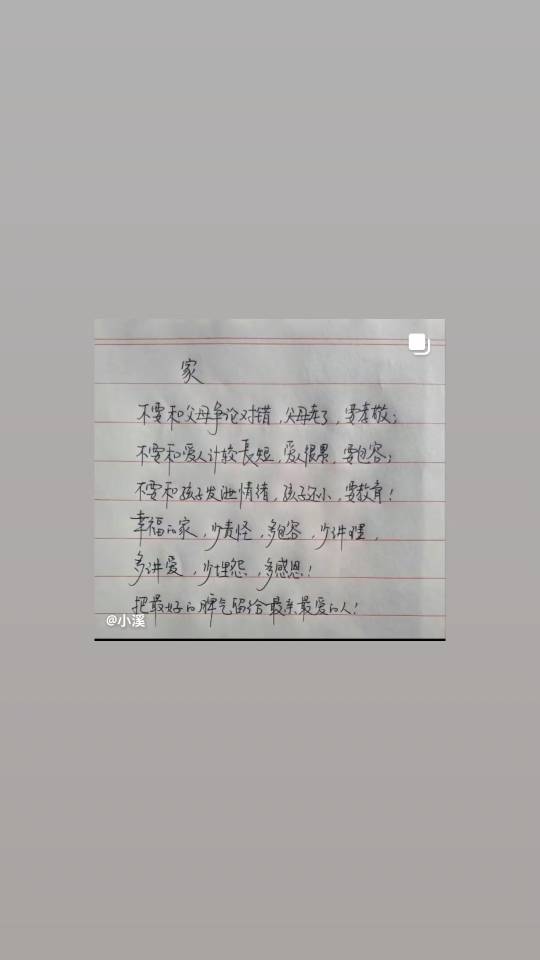 家
不要和父母争论对错，父母老了，要孝敬；
不要和爱人计较長短，爱人很累，要包容；
不要和孩子发泄情绪，孩子还小，要教育！
幸福的家，少责怪，多包容，少讲理，
多讲爱，少埋怨，多感恩！
把最好的脾气留给最亲最爱的人！
@小溪